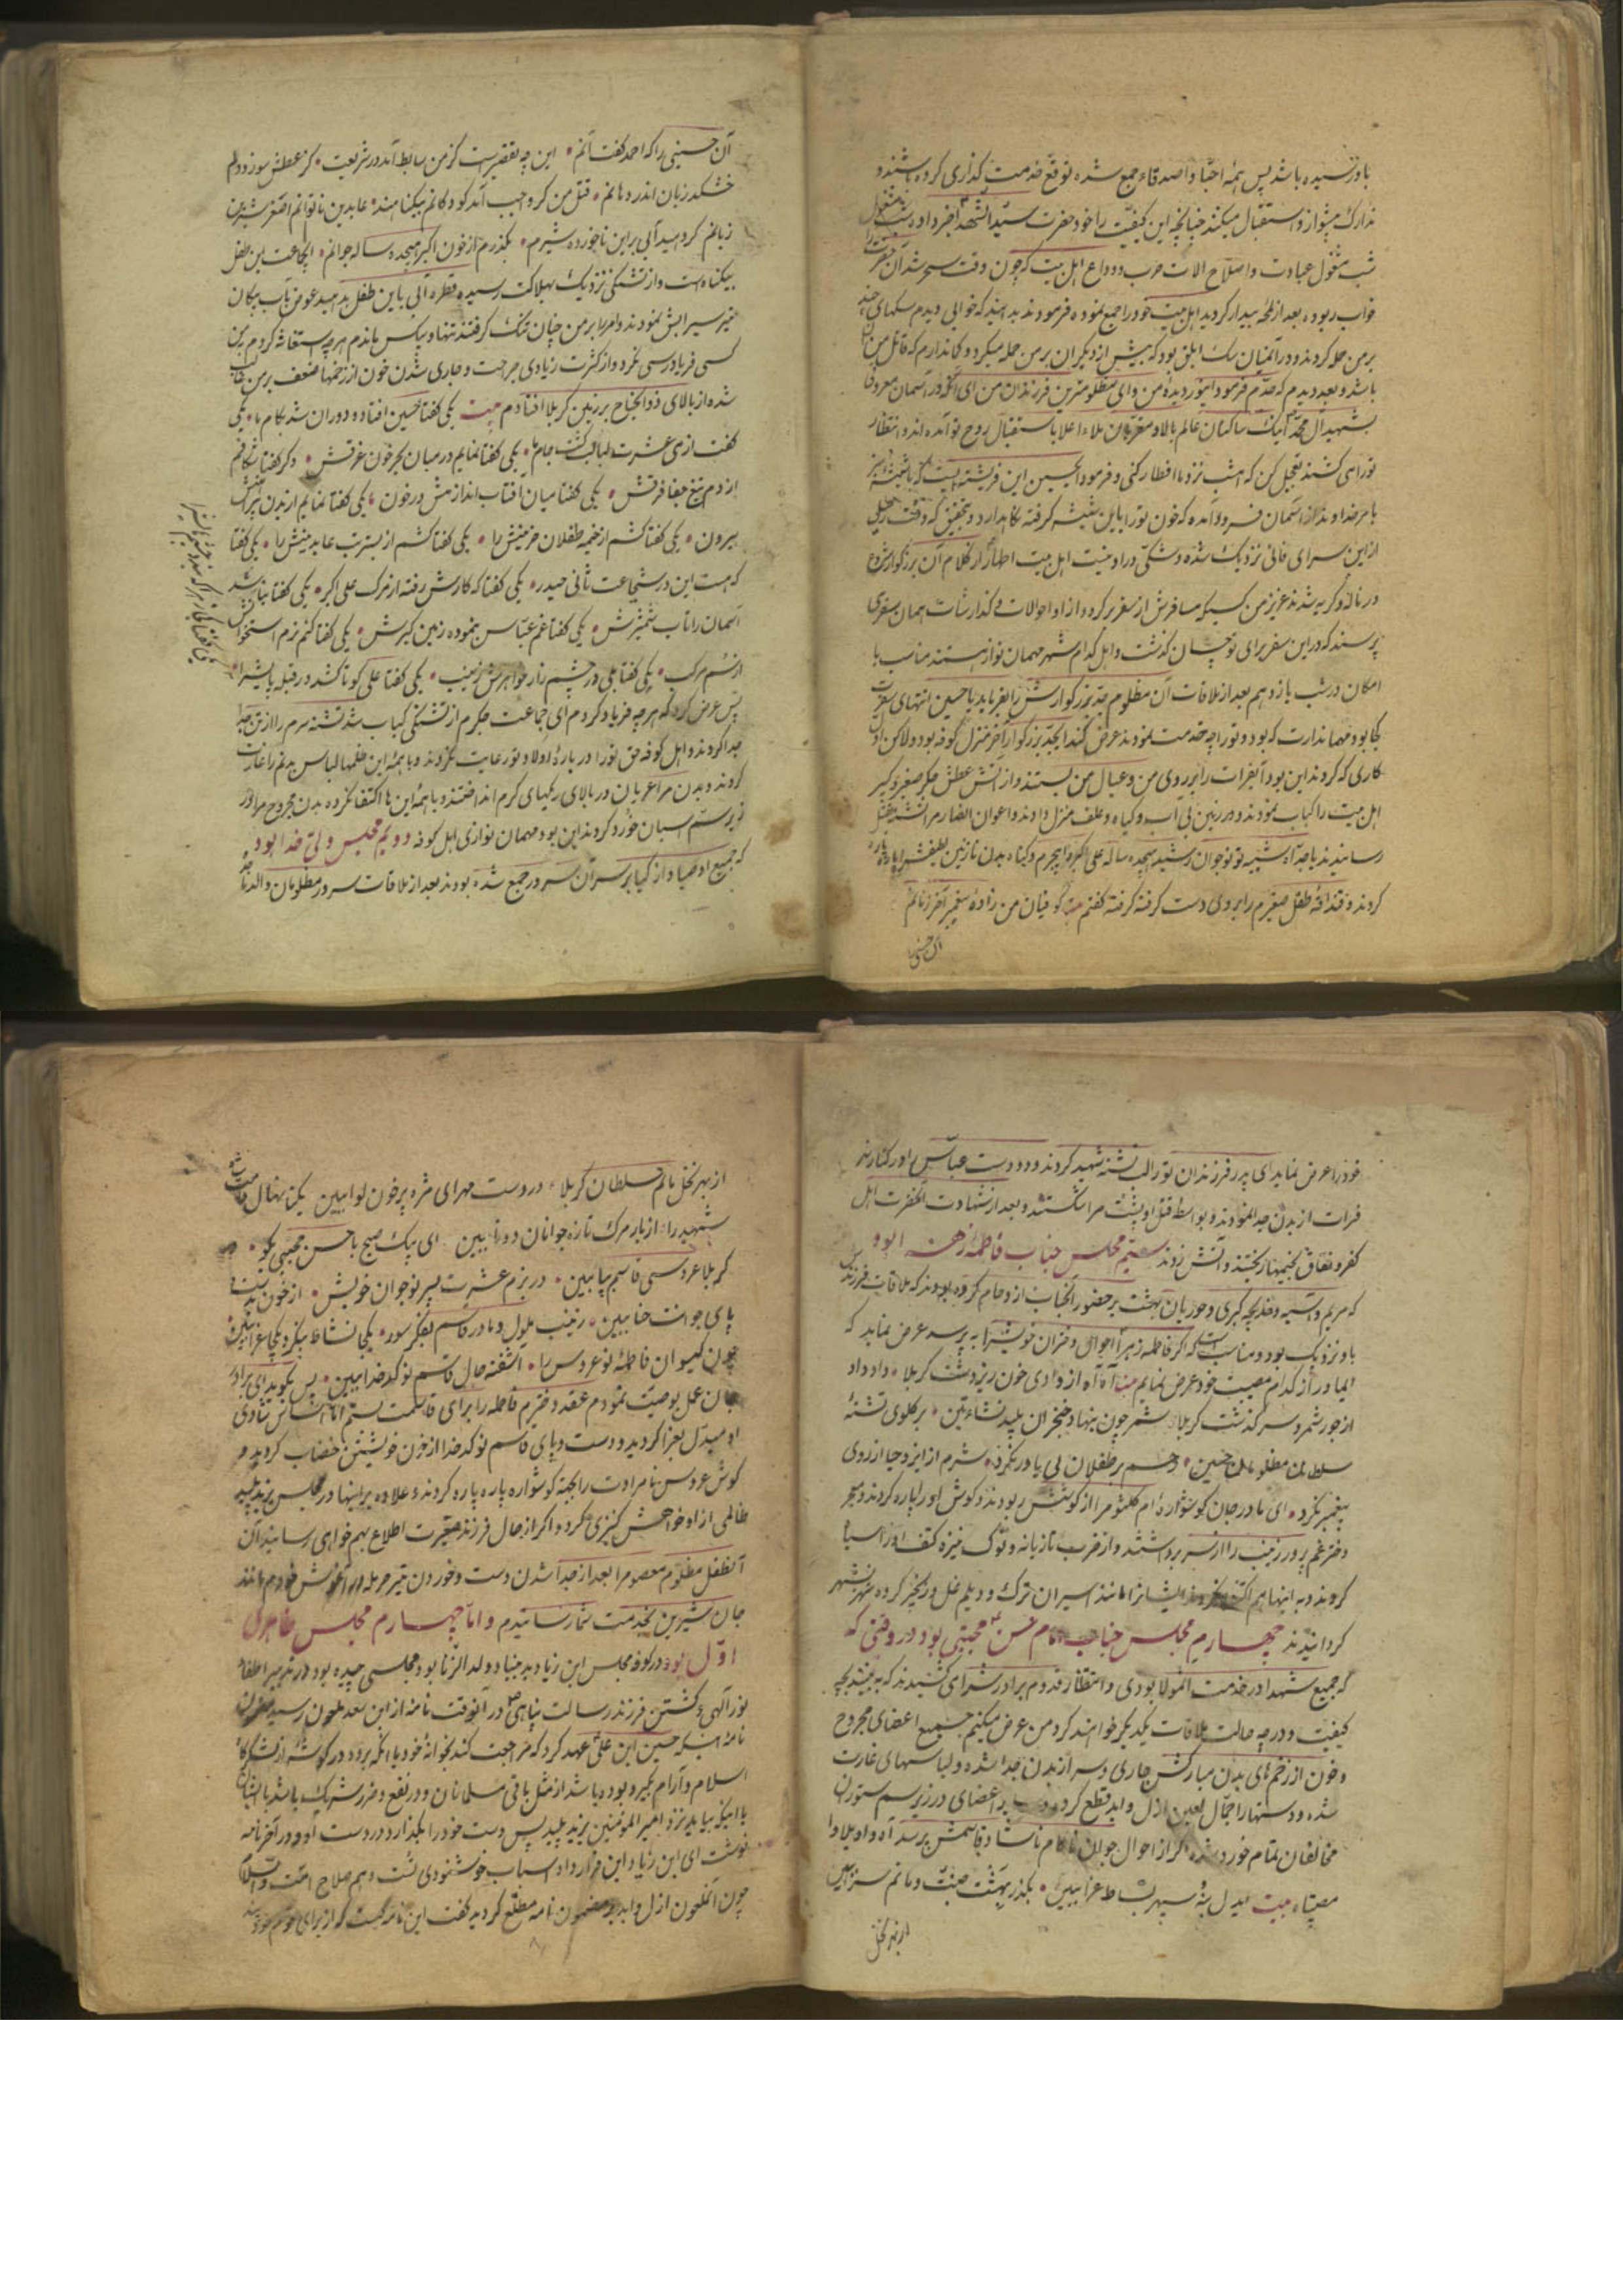 باو نرسیده باشد پس همهٔ احبّا و اصدقاء جمع شده توقع خدمت کذاری کرده باشند و
تدارک پیشواز و استقبال میکنند چنانچه این کیفیّت را خود حضرت سیّد الشهدا خبر داده
شب مشغول عبادت و اصلاح الات حرب و وداع اهل بیت که چون وقت سحر شد آن حضرت را
خواب ربوده بعد از لمحهٔ بیدار کردید اهل بیت خود را جمع نموده فرمودند بدانید که خوابی دیدم سکهای چند
بر من حمله کردند و در آنمیان سک ابلق بود که بیش از دیکران بر من حمله میکرد و کمان دارم که قاتل من آن
باشد و بعد دیدم که جدّم فرمود ای نور دیدهٔ من وای مظلومترین فرزندان من ای آنکه در آسمان معروفی
بشهید آل محمّد اینک ساکنان عالم بالا و مقربان ملاء اعلا باستقبال روح تو آمده اند و انتظار
تو را می کشند تعجیل کن که امشب نزد ما افطار کنی و فرمود ایحسین این فرشته ایست که با شیشهٔ سبز
بامر خداوند از آسمان فرود آمده که خون تو را باین شیشه کرفته نکاه دارد و بتحقیق که وقت رحیل
از این سرای فانی نزدیک شده و شکی در او نیست اهل بیت اطهار از کلام آن بزرکوار
در ناله و کریه شدند عزیز من کسیکه مسافرش از سفر برکردد از او احوالات و کذارشات همان سفر می
پرسند که در این سفر برای تو چسان کذشت و اهل کدام شهر مهمان نواز هستند مناسب با
امکان در شب یازدهم بعد از ملاقات آن مظلوم جدّ بزرکوارش را بفرماید یا حسین انتهای سفرت
کجا بود و مهماندارت که بود و تو را چه خدمت نمودند عرض کند ایجدّ بزرکوار آخر منزل کوفه بود و لاکن اوّل
کاری که کردند این بود آب فرات را بر روی من و عیال من بستند و از آتش عطش جکر صغیر و کبیر
اهل بیت را کباب نمودند و در زمین بی آب و کیاه و علف منزل دادند و اعوان انصار مرا تشنه بقتل
رسانیدند یا جدّاه شبیه تو نوجوان رشید هیجده ساله علی اکبر را بیجرم و کناه بدن نازنین لطیفش را پاره پاره
کردند و قنداقهٔ طفل صغیرم را بروی دست کرفته کفتم بیت کوفیان من زادهٔ پیغمبر آخر زمانم
آن حسینی
آن حسینی را که احمد کفت آنم این چه تقصیرست کز من سابط آمد در شریعت کز عطش سوزد دلم
خشکد زبان اندر دهانم قتل من کر واجب آمد کودکانم بیکناهند عابدین ناتوانم اصغر شیرین
زبانم کر دهید آبی بر این ناخورده شیرم بکذرم از خون اکبر هیجده ساله جوانم ایجماعت این طفل
بیکناه است و از تشنکی نزدیک بهلاکت رسیده قطرهٔ آبی باین طفل بدهید عوض آب پیکان
تیر سیرابش نمودند و امر را بر من چنان تنک کرفتند تنها و بیکس ماندم هر چه استغاثه کردم بمن
کسی فریادرسی نکرد و از کثرت زیادی جراحت و جاری شدن خون از زخمها ضعف بر من غالب
شده از بالای ذوالجناح بر زمین کربلا افتادم بیت یکی کفتا حسین افتاد و دوران شد بکام ما یکی
کفت از می عشرت لبالب کشت جام ما یکی کفتا نمایم در میان بحر خون غرقش دکر کفتا شکافم
از دم تیغ جفا فرقش یکی کفتا میان آفتاب اندازمش در خون یکی کفتا نمایم از بدن
بیرون یکی کفتا کشم از خیمه طفلان حزینش را یکی کفتا کشم از بسترت عابدینش را یکی کفتا
که هست این در شجاعت ثانی حیدر یکی کفتا که کارش رفته از مرک علی اکبر یکی کفتا
آسمان را تاب شمشیرش یکی کفتا غم عبّاس بنموده زمین کیرش یکی کفتا کنم نرم استخوانش
از سُم مرکب یکی کفتا بلی در چشم زار خواهرش زینب یکی کفتا علی کو تا کشد در قبله پایش را
پس عرض کرد که هر چه فریاد کردم ای جماعت جکرم از تشنکی کباب شد تشنه سرم را از تن جدا
جدا کردند و اهل کوفه حق تو را در بارهٔ اولاد تو رعایت نکردند و با همهٔ این ظلمها لباس بدنم را غارت
کردند و بدن مرا عریان در بالای ریکهای کرم انداختند و با همهٔ این ها اکتفا نکرده بدن مجروح مرا در
زیر سمّ اسبان خورد کردند این بود مهمان نوازی اهل کوفه دویم مجلس ولیّ خدا بود
که جمیع اوصیا و ازکیا بر سر آن سرور جمع شده بودند بعد از ملاقات سرور مظلومان والد ماجد
خود را عرض نماید ای پدر فرزندان تو را لب تشنه شهید کردند و دو دست عبّاس را در کنار نهر
فرات از بدن جدا نمودند و بواسطهٔ قتل او پشت مرا شکستند و بعد از شهادت آنحضرت اهل
کفر و نفاق بخیمها ریختند و آتش زدند سیّم مجلس جناب فاطمهٔ زهرا بود
که مریم و آسیه و خدیجهٔ کبری و حوریان بهشت بر حضور آنجناب ازدحام کرده بودند که ملاقات فرزندش
باو نزدیک بود و مناسب است که اکر فاطمه زهرا احوال دختران خویش را بپرسد عرض نماید که
ایمادر از کدام مصیبت خود عرض نمایم بیت آه آه از وادی خون ریز دشت کربلا داد داد
از جور شمر و سرکذشت کربلا شمر چون بنهاد خنجر آن پلید نشاءتین بر کلوی تشنهٔ
سلطان مظلومان حسین رحم بر طفلان بی یاور نکرد شرم از ایزد حیا از روی
پیغمبر نکرد ای مادر جان کوشوارهٔ ام کلثوم را از کوشش ربودند و کوش او را پاره کردند و معجر
دختر غم پرور زینب را از سر برداشتند و از ضرب تازیانه و نوک نیزه کتف او را سیاه
کردند و به اینها هم اکتفا نکردند ایشانرا مانند اسیران ترک و دیلم غل و زنجیر کرده شهر بشهر
کردانیدند چهارم مجلس جناب امام حسن مجتبی بود در وقتی که
که جمیع شهدا در خدمت آنمولا بودی و انتظار قدوم برادرش را می کشیدند که به بینند بچه
کیفیت و در چه حالت ملاقات یکدیکر خواهند کرد من عرض میکنم جمیع اعضای مجروح
و خون از زخمهای بدن مبارکش جاری و سر از بدن جدا شده و لباسهای غارت
شده و دستها را جمّال لعین ازل و ابد قطع کرده و سایر اعضای در زیر سم ستوران
مخالفان تمام خورد شده اکر از احوال جوان ناکام ناشاد قاسمش پرسد آه و اویلا وا
مصیبتاه بیت ایدل بنُه سپهر بساط عزا ببین بکذر بهشت جنّت و ماتم سرا ببین
از بهر نخل
از بهر نخل ماتم سلطان کربلا در دست مهر ای مژه پر خون لوا ببین یکتا نهال قامت
شهید را از بار مرک تازه جوانان دوتا ببین ای پیک صبح با حسن مجتبی بکو
کربلا عروسی قاسم بیا ببین در بزم عشرت پسر نوجوان خویش از خون بدست و
پای جوانت حنا ببین زینب ملول و مادر قاسم بفکر سور یکجا نشاط بنکر و یکجا عزا ببین
چون کیسوان فاطمهٔ نو عروس را آشفته حال قاسم نو کدخدا ببین پس بکوید ای برادر
جان عمل بوصیّت نمودم عقد دخترم فاطمه را برای قاسمت بستم امّا اساس شادی
او مبدّل بعزا کردید و دست و پای قاسم نو کدخدا از خون خویشتن خضاب کردید و
کوش عروس نامرادت را بجهة کوشواره پاره پاره کردند علاوه بر اینها در مجلس یزید پلید
ظالمی از او خواهش کنیزی کرد و اکر از حال فرزند صغیرت اطلاع بهم خواهی رسانید آن
آنطفل مظلوم معصوم را بعد از جدا شدن دست و خوردن تیر حرمله در آغوش خودم مانند
جان شیرین بخدمت شما رسانیدم و امّا چهارم مجلس ظاهری
اوّل بود در کوفه مجلس ابن زیاد بد بنیاد ولد الزنا بود مجلسی چیده بود در تدبیر اطفاء
نور آلهی و کشتن فرزند رسالت پناهی در آنوقت نامه از ابن سعد ملعون رسید مضمون
نامه اینکه حسین ابن علی عهد کرد که مراجعت کند بخانهٔ خود یا آنکه برود در کوشهٔ از شهرهای
اسلام و آرام بکیرد بوده باشد از مثل باقی مسلمانان و در نفع و ضرر شریک باشد با ایشان
یا اینکه بیاید نزد امیر المؤمنین یزید پلید پس دست خود را بکذارد در دست او و در آخر نامه
نوشت ای ابن زیاد این قرار داد اسباب خوشنودی تست و هم صلاح امّت والسّلام
چون آنملعون ازل و ابد بر مضمون نامه مطلّع کردید کفت این نامه ایست که از برای قوم خود